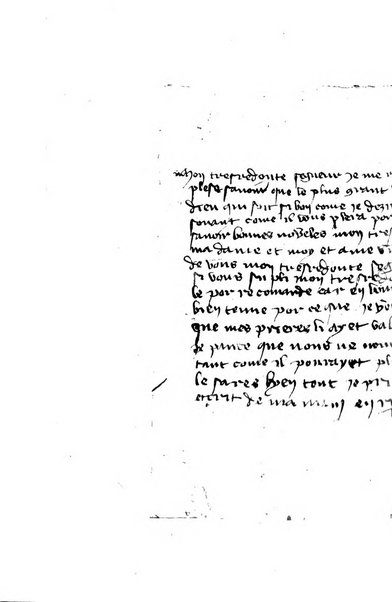 mon tresredoute segneur je me r
plese savoir que le plus grant
dieu qui soit si bon come je dezir
sovant come il vous plera por
savoir bonnes noveles mon tres
madame et moy et ame s
de vous mon tresredoute seg
si vous supli mon tresredo
le por recomande car en bone
bien tenue por ce que je
que mes prieres li ayet val
je panse que vous ne
tant come il pourayet pl
le fares byen tout je pri
escrit de ma main en